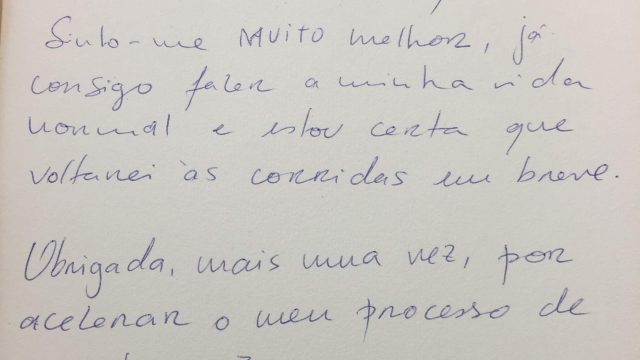 Sinto-me MUITO melhor, já
consigo fazer a minha vida
normal e estou certa que
voltarei às corridas em breve.
Obrigada, mais uma vez, por
acelerar o meu processo de